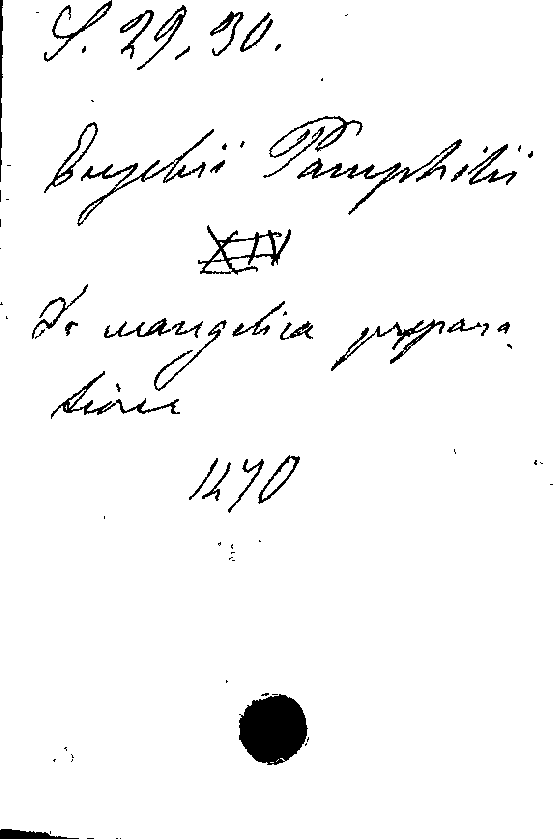 S. 29, 30.
Eugebii Pamphilii
XIV
De evangelica prepara
tione
1470